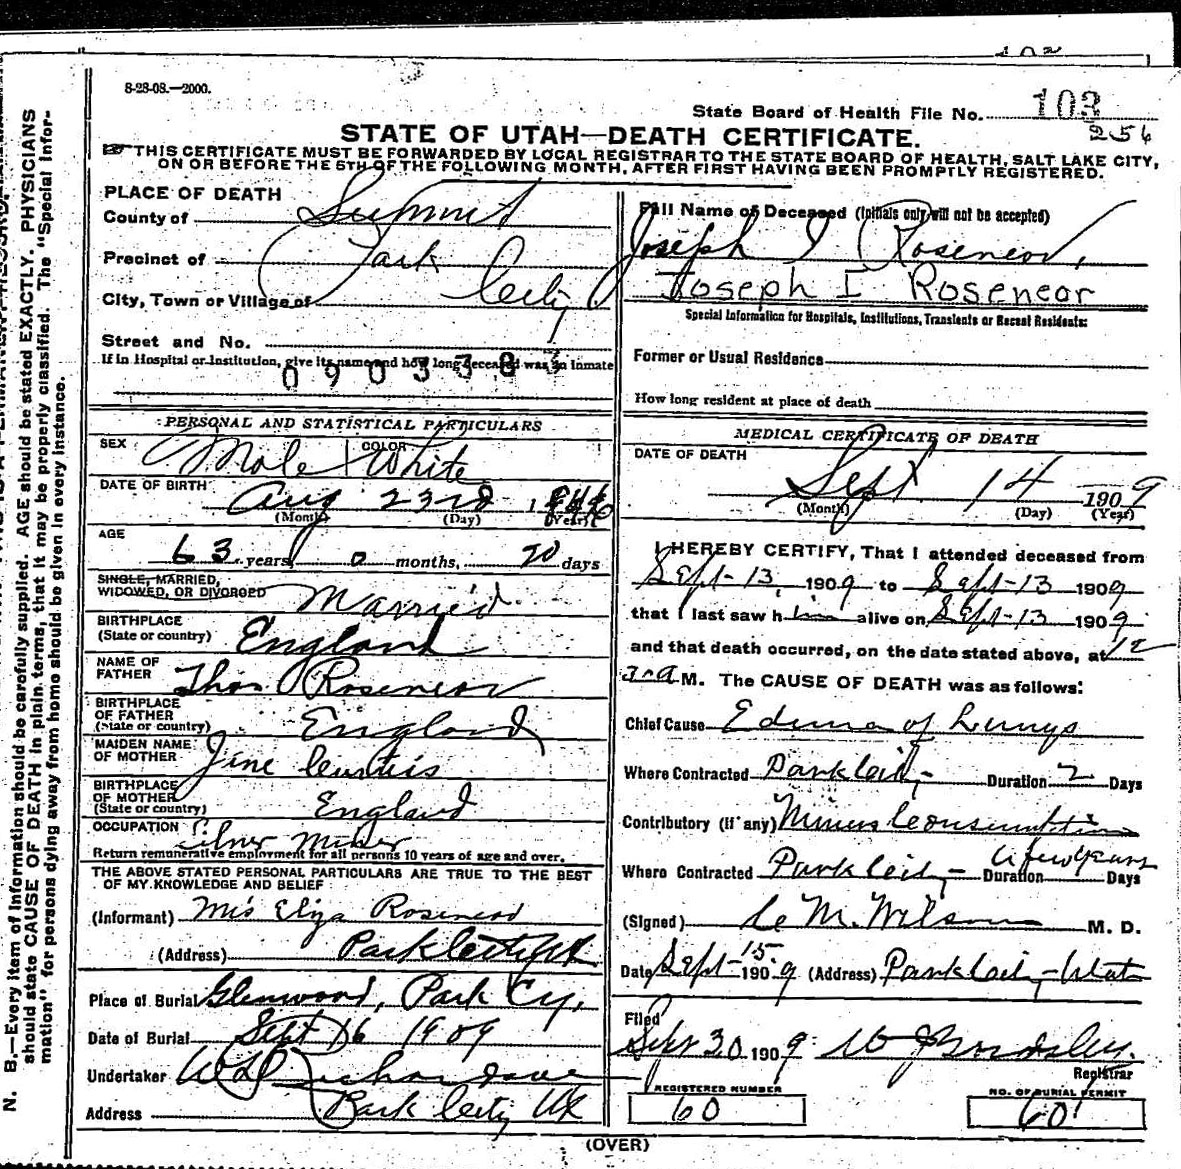 102
8-28-08.—2000.
State Board of Health File No. 103
256
STATE OF UTAH—DEATH CERTIFICATE.
THIS CERTIFICATE MUST BE FORWARDED BY LOCAL REGISTRAR TO THE STATE BOARD OF HEALTH, SALT LAKE CITY,
ON OR BEFORE THE 5TH OF THE FOLLOWING MONTH, AFTER FIRST HAVING BEEN PROMPTLY REGISTERED.
PLACE OF DEATH
County of Summit
Precinct of Park
City, Town or Village of City
Street and No.
If in Hospital or Institution, give its name and how long deceased was an inmate
0903383
PERSONAL AND STATISTICAL PARTICULARS
SEX Male COLOR White
DATE OF BIRTH Aug 23rd 1846
(Month) (Day) (Year)
AGE
63 years 0 months, 20 days
SINGLE, MARRIED,
WIDOWED, OR DIVORCED Married
BIRTHPLACE
(State or country) England
NAME OF
FATHER Thos Rosenear
BIRTHPLACE
OF FATHER
(State or country) England
MAIDEN NAME
OF MOTHER Jine Curtis
BIRTHPLACE
OF MOTHER
(State or country) England
OCCUPATION Silver Miner
Return remunerative employment for all persons 10 years of age and over.
THE ABOVE STATED PERSONAL PARTICULARS ARE TRUE TO THE BEST
OF MY KNOWLEDGE AND BELIEF
(Informant) Mrs Eliza Rosenear
(Address) Park City Ut
Place of Burial Glenwood, Park Cy,
Date of Burial Sept 16 1909
Undertaker
Address Park City Ut
Full Name of Deceased (Initials only will not be accepted)
Joseph I Rosenear,
Joseph I Rosenear
Special Information for Hospitals, Institutions, Transients or Recent Residents:
Former or Usual Residence
How long resident at place of death
MEDICAL CERTIFICATE OF DEATH
DATE OF DEATH
Sept 14 1909
(Month) (Day) (Year)
I HEREBY CERTIFY, That I attended deceased from
Sept-13, 1909 to Sept-13 1909
that I last saw him alive on Sept-13 1909
and that death occurred, on the date stated above, at 12
M. The CAUSE OF DEATH was as follows:
Chief Cause Edema of Lungs
Where Contracted Park City- Duration 2 Days
Contributory (if any) Miners Consumption
Where Contracted Park City- Duration a few years Days
(Signed) C M. Wilson M. D.
Date Sept-15. 1909 (Address) Park City-Utah
Filed
Sept 30 1909
Registrar
REGISTERED NUMBER
60
NO. OF BURIAL PERMIT
60
(OVER)
N. B.—Every item of information should be carefully supplied. AGE should be stated EXACTLY. PHYSICIANS
should state CAUSE OF DEATH in plain terms, that it may be properly classified. The "Special Infor-
mation" for persons dying away from home should be given in every instance.